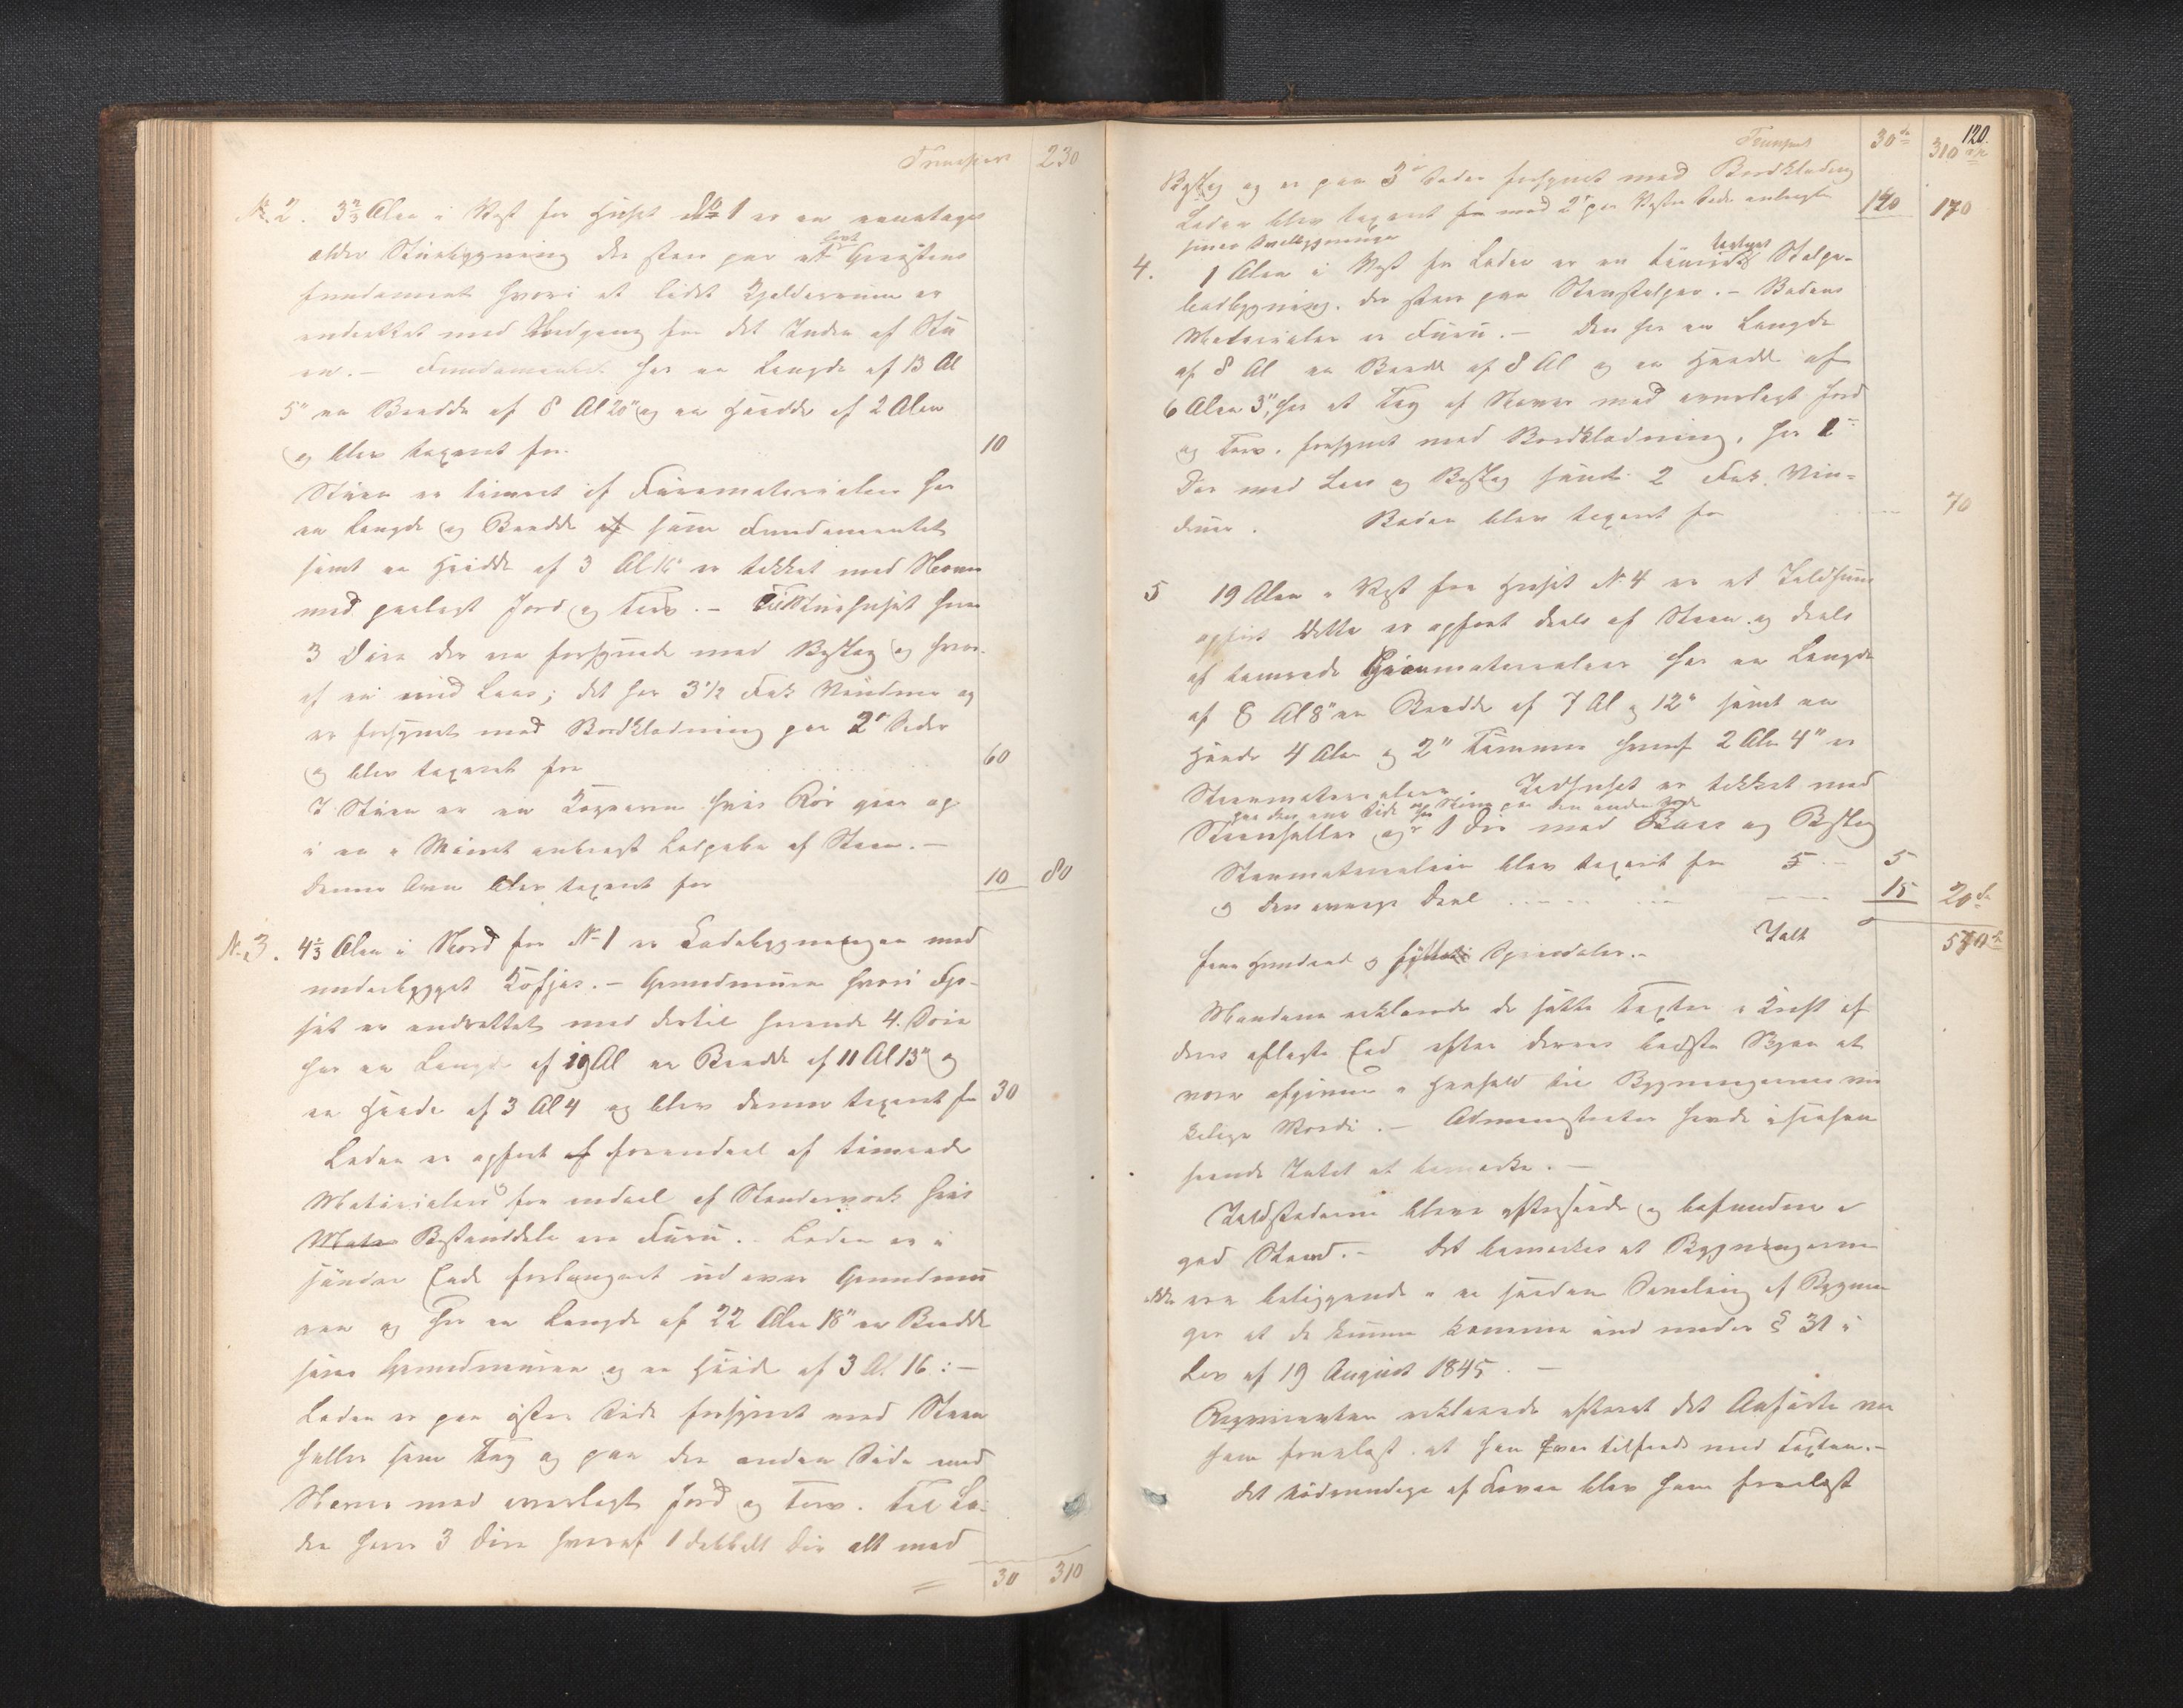 Transport 230
No 2. 3 2/3 Alen i Vest for Huset No 1 er en eenetages
ældre Stuebygning der staar paa et lavt Graastens
fundament hvori et lidet Kjelderrum er
indrettet med Nedgang fra det Indre af Stu
en. – Fundamentet har en Længde af 13 Al
5" en Bredde af 8 Al 20" og en Høide af 2 Alen
og blev taxeret for 10
Stuen er tømret af Furematerialier har
en Længde og Bredde som Fundamentet
samt en Høide af 3 Al 16" er tækket med Næver
med paalagt Jord og Torv. –
3 Døre der ere forsynede med Beslag og hvor-
af en med Laas; det har 3 1/2 Fak Vinduer og
er forsynet med Bordklædning paa 2de Sider
og blev taxeret for 60
I Stuen er en Kogeovn hvis Rør gaar op
i en i Mønet anbragt Ladpibe af Steen. –
denne Ovn blev taxeret for 10 80
No 3. 4 1/3 Alen i Nord for No 1 er Ladebygningen med
underbygget Kofjøs. – Grundmuren hvori Fjø-
set er indrettet med dertil hørende 4. Døre
har en Længde af 19 Al en Bredde af 11 Al 13" og
en Høide af 3 Al 4 og blev denne taxeret for 30
Laden er opført for en deel af tømrede
Materialier og for endeel af Standerværk hvis
Bestanddele ere Furu. – Laden er i
søndre Ende forlænget ud over Grundmu
ren og har en Længde af 22 Alen 18" en Bredde
som Grundmuren og en Høide af 3 Al 16: –
Laden er paa østre Side forsynet med Steen
heller som Tag og paa den anden Side med
Næver med overlagt Jord og Torv. Til La-
den hører 3 Døre hvoraf 1 dobbelt Dør alt med
30 310
120.
Transport 30 310
Beslag og er paa 3de Sider forsynet med Bordklædning
Laden blev taxeret for med 2de paa Vestre Side anbragte
140 170
4. 1 Alen i Vest for Laden er en tømret Stolpe-
bodbygning. der staar paa Steenstolper. – Bodens
Materialier er Furu. – Den har en Længde
af 8 Al en Bredde af 8 Al og en Høide af
6 Alen 3", har et Tag af Næver med overlagt Jord
og Torv, forsynet med Bordklædning, har
Dør med Laas og Beslag samt 2 Fak. Vin-
duer. Boden blev taxeret for 70
5 19 Alen i Vest fra Huset No 4 er et Ildhuus
opført Dette er opført deels af Steen og deels
af tømrede materialier har en Længde
af 8 Al 8" en Bredde af 7 Al og 12" samt en
Høide 4 Alen og 2" Tommer hvoraf 2 Alen 4" er
Steenmaterialier. Ildhuset er tækket med
paa den ene Side og Næver paa den anden Side
Steenheller og har 1 Dør med Laas og Beslag
Steenmaterialier blev taxeret for 5 – 5
og den øvrige Deel 15 20
Ialt
fem Hundred og Speciedaler. –
Mændene erklærede de satte Taxter i Kraft af
deres aflagte Eed efter deres bedste Skjøn at
være afgivne i Henhold til Bygningernes vir
kelige Værdi. – Administrator havde i saa
seende Intet at bemærke. –
Ildstederne bleve efterseede og befundne i
god Stand. – Det bemærkes at Bygningerne
ikke ere beliggende i en saadan Samling af Bygnin
ger at de kunne komme ind under § 31 i
Lov af 19 August 1845. –
Requirenten erklærede efterat det Anførte var
ham forelæst at han var tilfreds med Taxten. –
Det Nødvendige af Loven blev ham forelæst